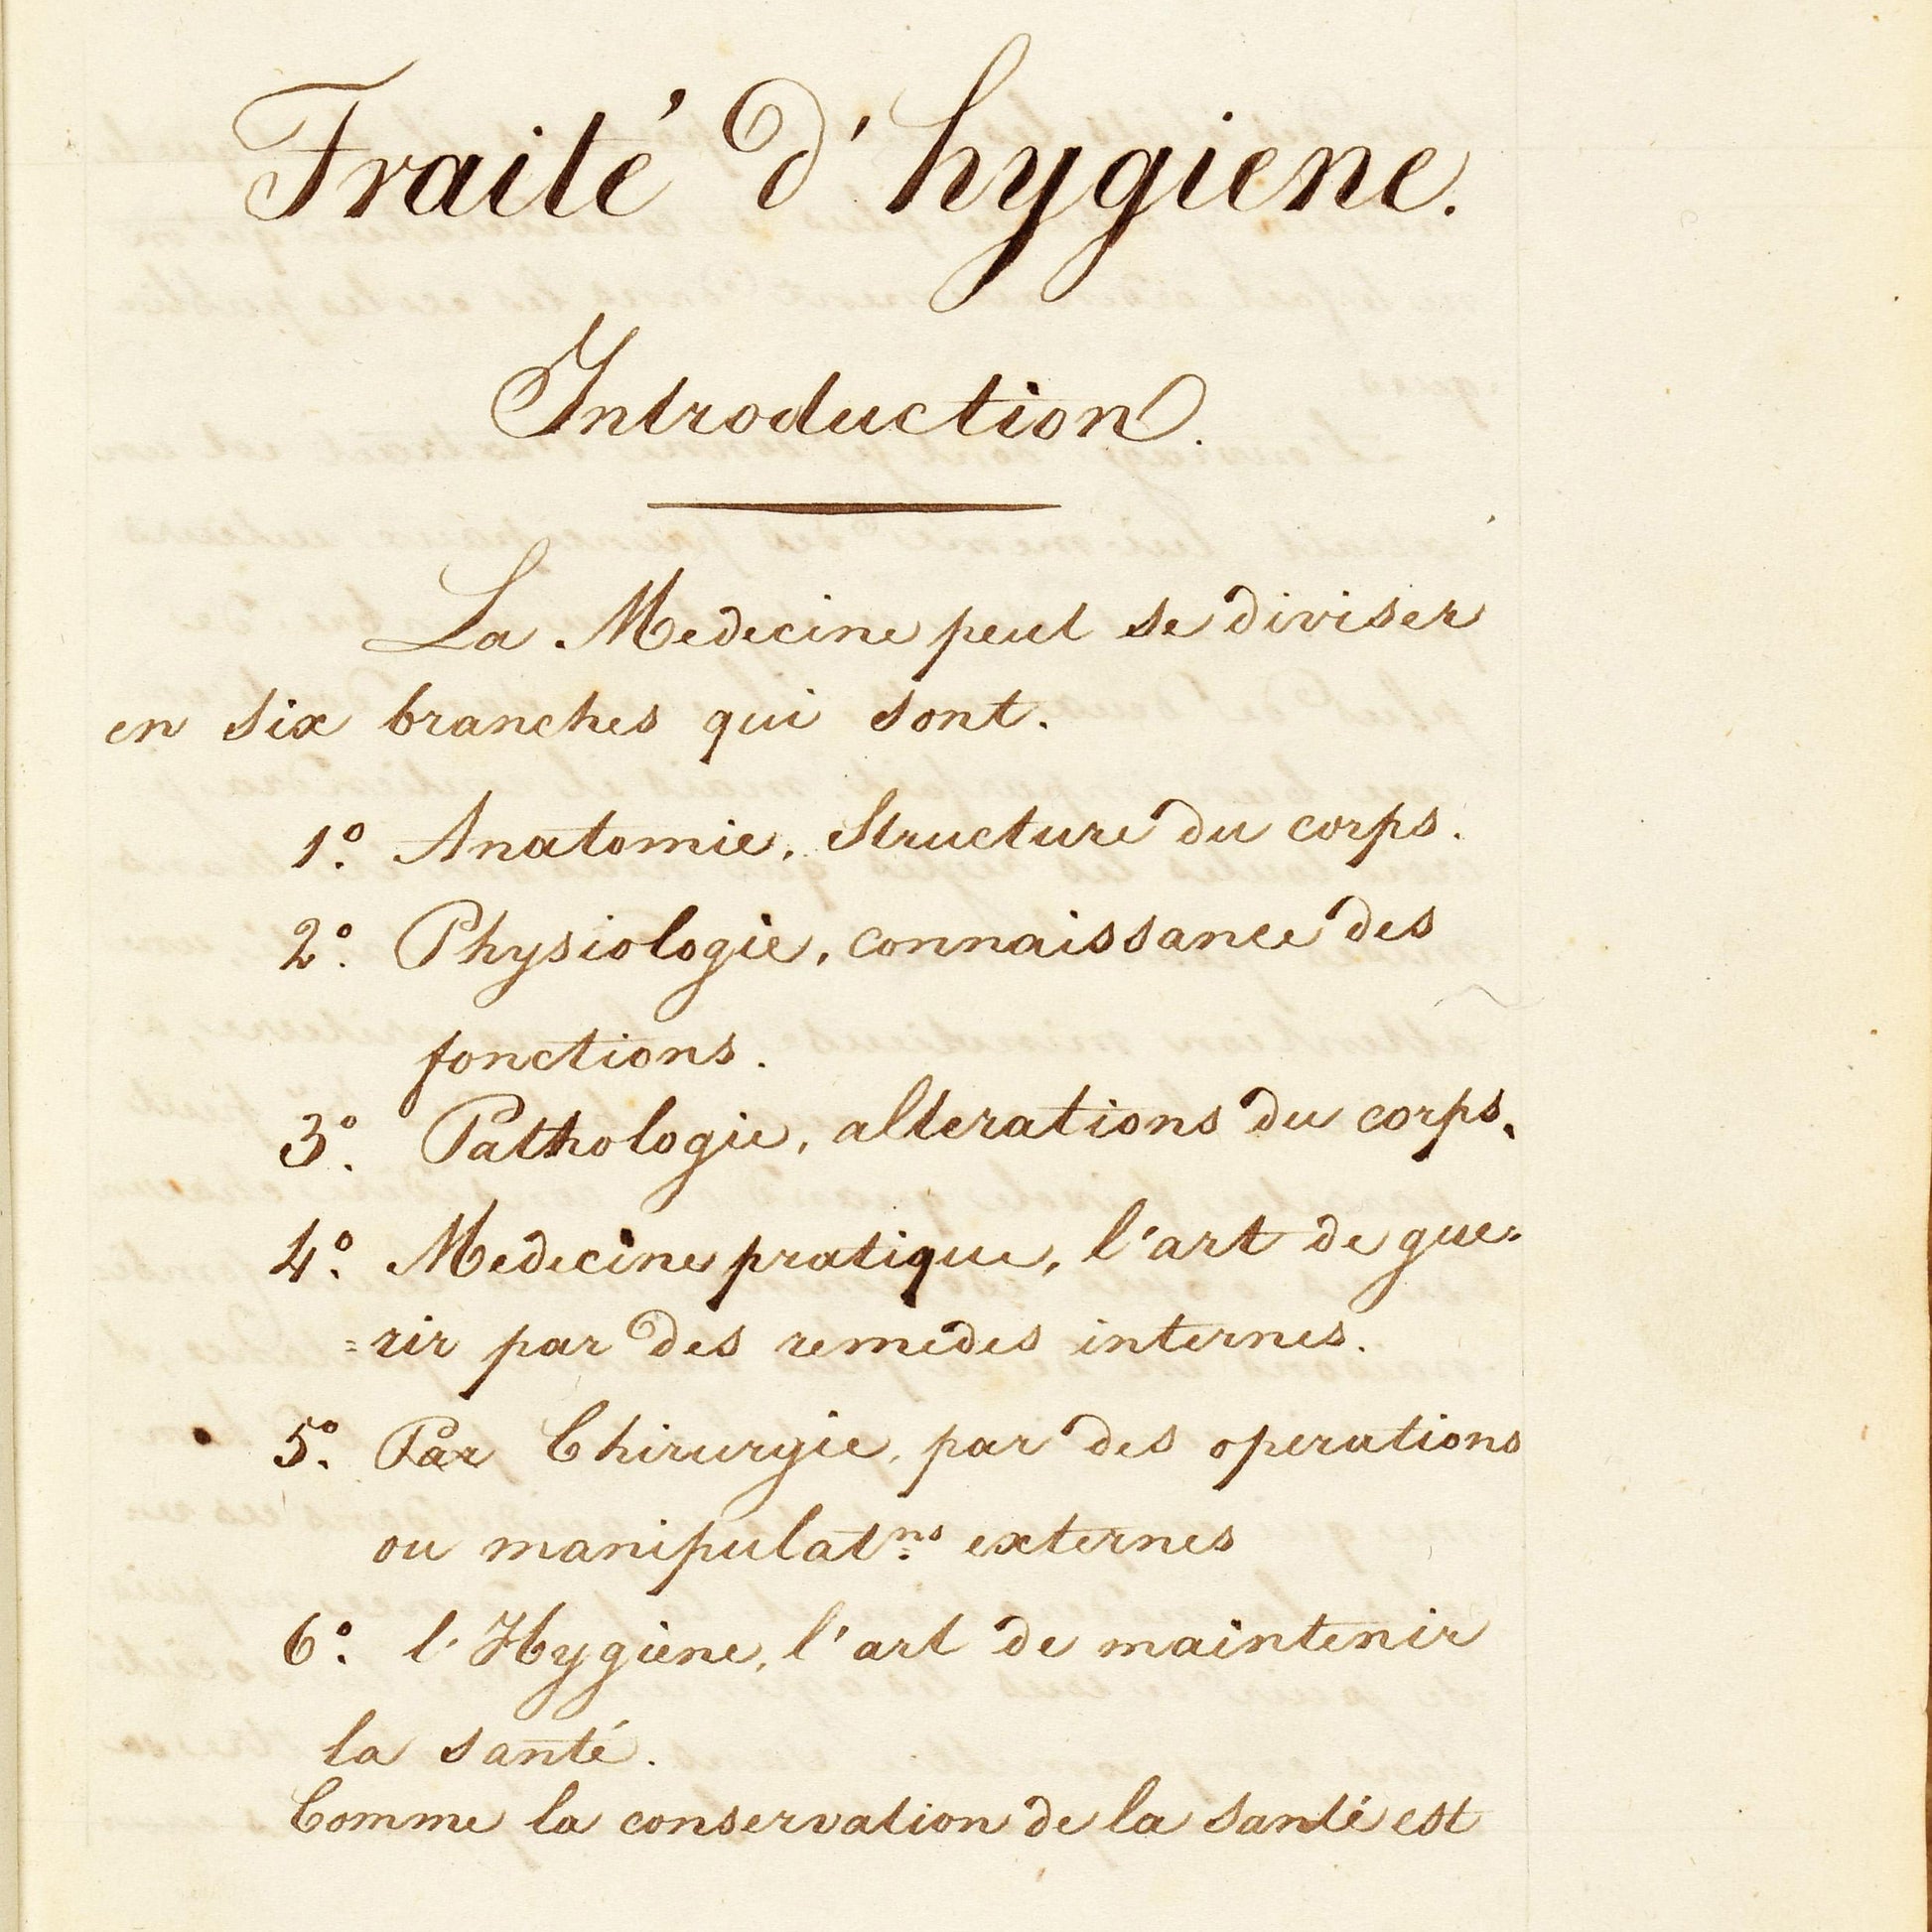 Traité d'hygiene.
Introduction.
La Medecine peut se diviser
en six branches qui sont.
1º. Anatomie, Structure du corps.
2º. Physiologie, connaissance des
fonctions.
3º. Pathologie, alterations du corps.
4º. Medecine pratique, l'art de gue-
=rir par des remedes internes.
5º. Par Chirurgie, par des operations
ou manipulatns externes
6º. l'Hygiene, l'art de maintenir
la santé.
Comme la conservation de la santé est